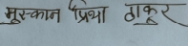 मुस्कान प्रिया ठाकुर